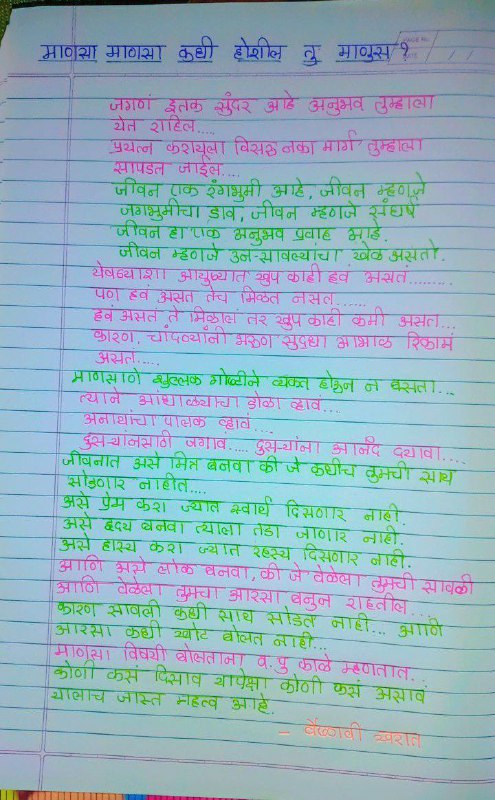 माणसा माणसा कधी होशील तु माणुस ?
जगणं इतक सुंदर आहे अनुभव तुम्हाला
येत राहिल....
प्रयत्न करायला विसरु नका मार्ग तुम्हाला
सापडत जाईल....
जीवन एक रंगभुमी आहे, जीवन म्हणजे
जगभुमीचा डाव, जीवन म्हणजे संघर्ष
जीवन हा एक अनुभव प्रवाह आहे.
जीवन म्हणजे उन-सावल्यांचा खेळ असतो.
येवढ्याशा आयुष्यात खुप काही हवं असतं........
पण हवं असतं तेच मिळत नसतं........
हवं असतं ते मिळालं तर खुप काही कमी असतं...
कारण, चांदण्यांनी भरुण सुद्धा आभाळ रिकामं
असतं.....
माणसाणे क्षुल्लक गोष्टीने व्यक्त होऊन न बसता...
त्याने आंधाळ्याचा डोळा व्हावं...
अनाथांचा पालक व्हावं....
दुसऱ्यानसाठी जगाव..... दुसऱ्यांना आनंद दयावा....
जीवनात असे मित्र बनवा की जे कधीच तुमची साथ
सोडणार नाहीत....
असे प्रेम करा ज्यात स्वार्थ दिसणार नाही.
असे हृदय बनवा त्याला तडा जाणार नाही.
असे हास्य करा ज्यात रहस्य दिसणार नाही.
आणि असे लोक बनवा, की जे वेळेला तुमची सावली
आणि वेळेला तुमचा आरसा बनुन राहतील....
कारण सावली कधी साथ सोडत नाही... आणि
आरसा कधी खोटं बोलत नाही...
माणसा विषयी बोलताना व. पु काळे म्हणतात..
कोणी कसं दिसाव यापेक्षा कोणी कसं असाव
यालाच जास्त महत्व आहे.
- वैष्णवी खरात